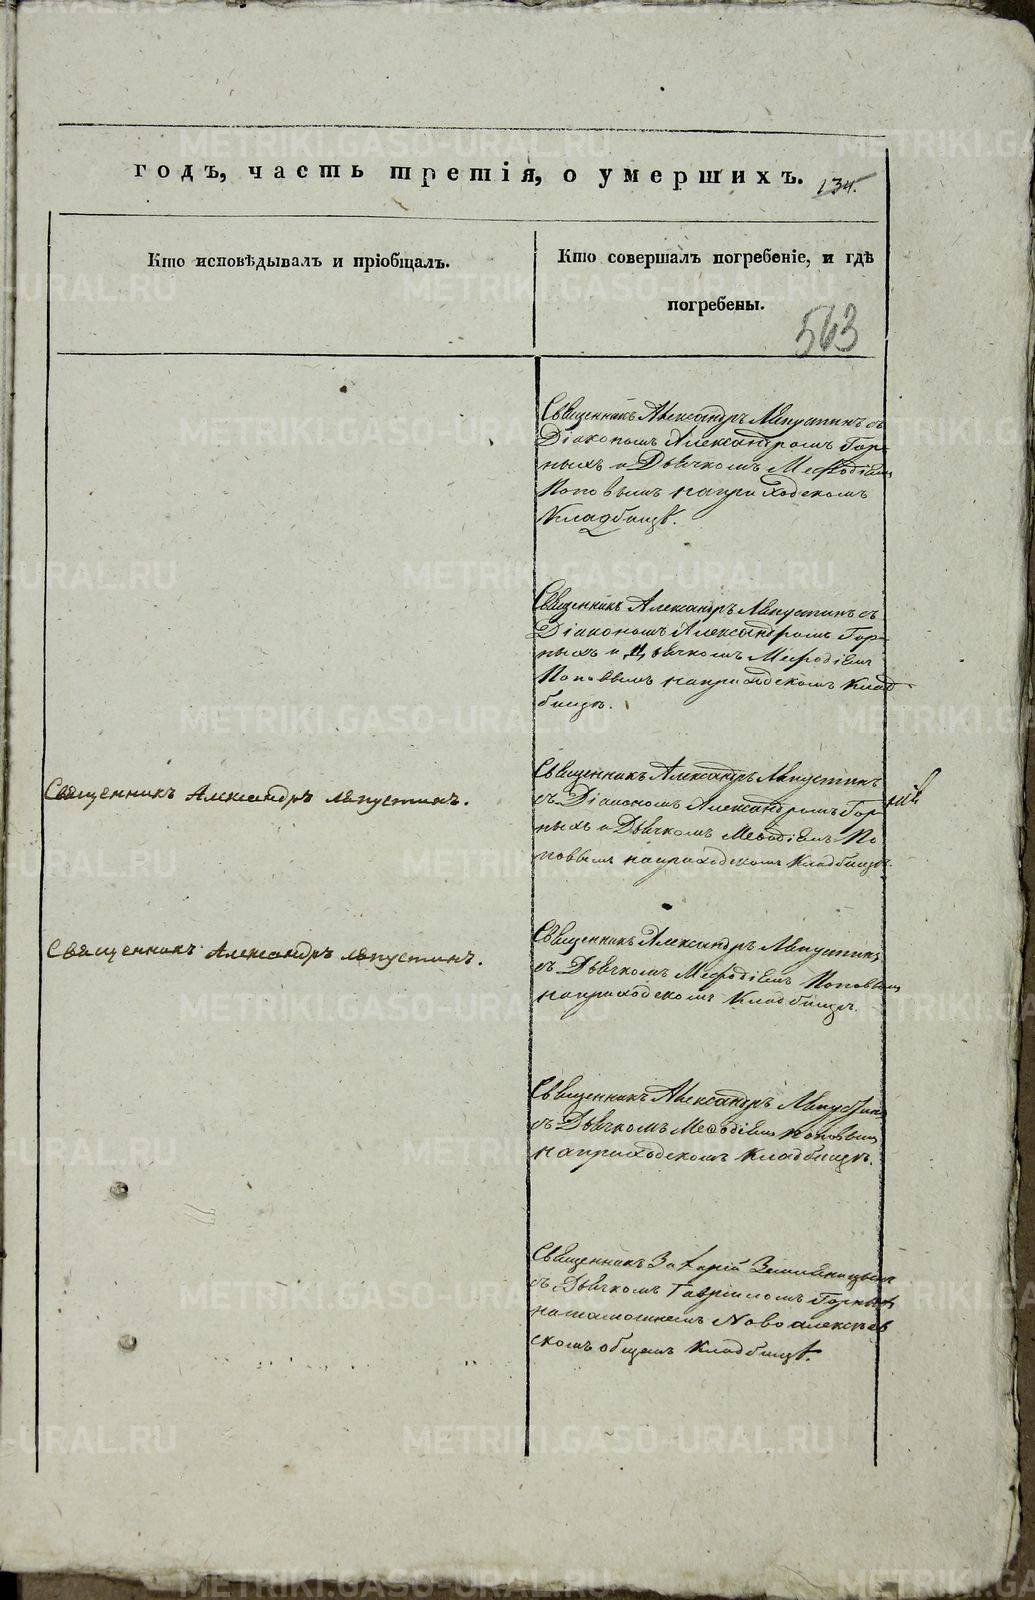 годъ, часть третія, о умершихъ. 134.
Кто исповѣдывалъ и пріобщалъ.
Кто совершалъ погребеніе, и гдѣ
погребены.
563
Священникъ Александръ Лапустинъ съ
Діакономъ Александромъ Гор-
ныхъ и Дьячкомъ Мефодіемъ
Поповымъ на приходскомъ
Кладбищѣ.
Священникъ Александръ Лапустинъ съ
Діакономъ Александромъ Гор-
ныхъ и Дьячкомъ Мефодіемъ
Поповымъ на приходскомъ Клад-
бищѣ.
Священникъ Александръ Лапустинъ.
Священникъ Александръ Лапустинъ
съ Діакономъ Александромъ Гор-
ныхъ и Дьячкомъ Меѳодіемъ По
повымъ на приходскомъ Кладбищѣ.
Священникъ Александръ Лапустинъ.
Священникъ Александръ Лапустинъ
съ Дьячкомъ Мефодіемъ Поповымъ
на приходскомъ Кладбищѣ.
Священникъ Александръ Лапустинъ
съ Дьячкомъ Меѳодіемъ Поповымъ
на приходскомъ Кладбищѣ.
Священникъ Захарій Земляницынъ
съ Дьячкомъ Гавріиломъ Горныхъ
на тамошнемъ Новоалексѣев
скомъ общемъ Кладбищѣ.
METRIKI.GASO-URAL.RU